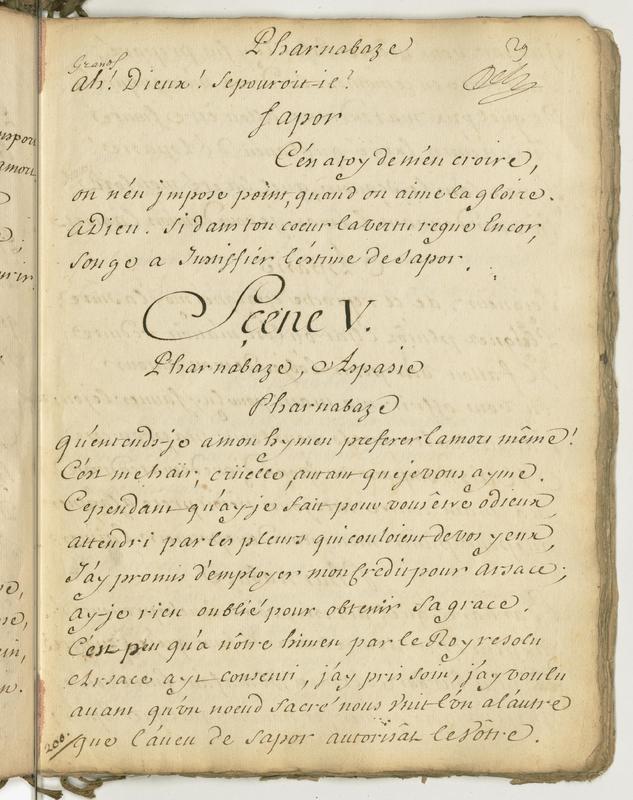 Pharnabaze
29
Grands
ah! Dieux! se pouroit-ic?
Sapor
C'en a toy de m'en croire,
on n'en jmpose point, quand on aime la gloire.
aDieu. Si dans ton coeur la vertu regne Encor,
songe a Justiffier l'estime de Sapor.
Sçene V.
Pharnabaze, Aspasie
Pharnabaze
qu'entends-je a mon hymen preferer la mort même!
C'est me haïr, crüelle, autant que je vous ayme.
Cependant qu'ay-je fait pour vous être odieux,
attendri par les pleurs qui couloient de vos yeux,
J'ay promis d'employer mon Credit pour Arsace;
ay-je rien oublié pour obtenir sa grace.
C'est peu qu'a nôtre himen par le Roy resolu
Arsace ayt consenti, j'ay pris soin, j'ay voulu
avant qu'vn noeud sacré nous vnit l'vn a l'autre
200. que l'aveu de Sapor autorisât le Vôtre.